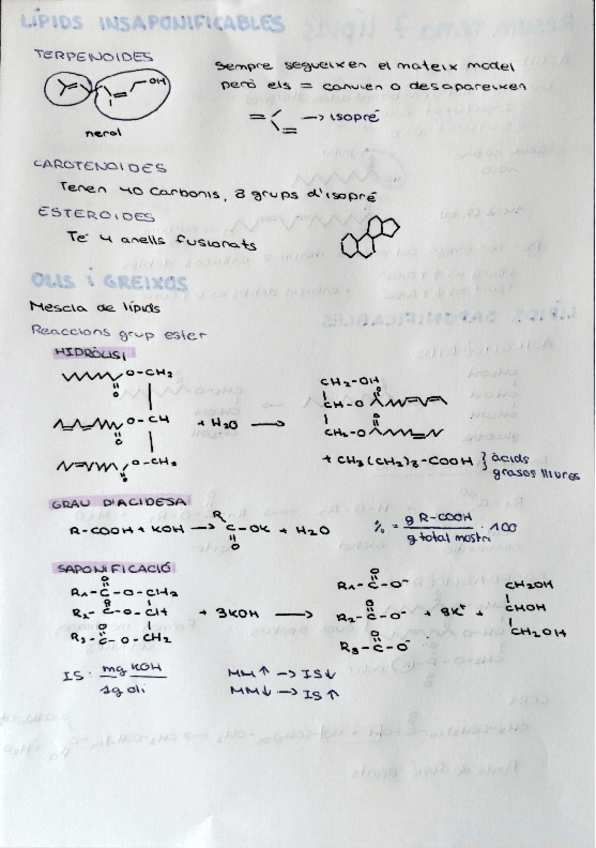 LÍPIDS INSAPONIFICABLES
TERPENOIDES
Sempre segueixen el mateix model
però els = canvien o desapareixen
OH
nerol
= → isoprè
CAROTENOIDES
Tenen 40 carbonis, 8 grups d'isoprè
ESTEROIDES
Té 4 anells fusionats
OLIS i GREIXOS
Mescla de lípids
Reaccions grup ester
HIDRÒLISI
O-CH2
O
O-CH
O
O-CH2
O
+ H2O →
CH2-OH
CH-O
O
CH2-O
O
+ CH3(CH2)8-COOH } àcids
grasos lliures
GRAU D'ACIDESA
R-COOH + KOH → R C-OK + H2O
O
% = g R-COOH / g total mostra · 100
SAPONIFICACIÓ
R1-C-O-CH2
O
R2-C-O-CH
O
R3-C-O-CH2
O
+ 3KOH →
R1-C-O-
O
R2-C-O-
O
R3-C-O-
O
+ 3K+ +
CH2OH
CHOH
CH2OH
IS: mg KOH / 1g oli
MM↑ → IS↓
MM↓ → IS↑